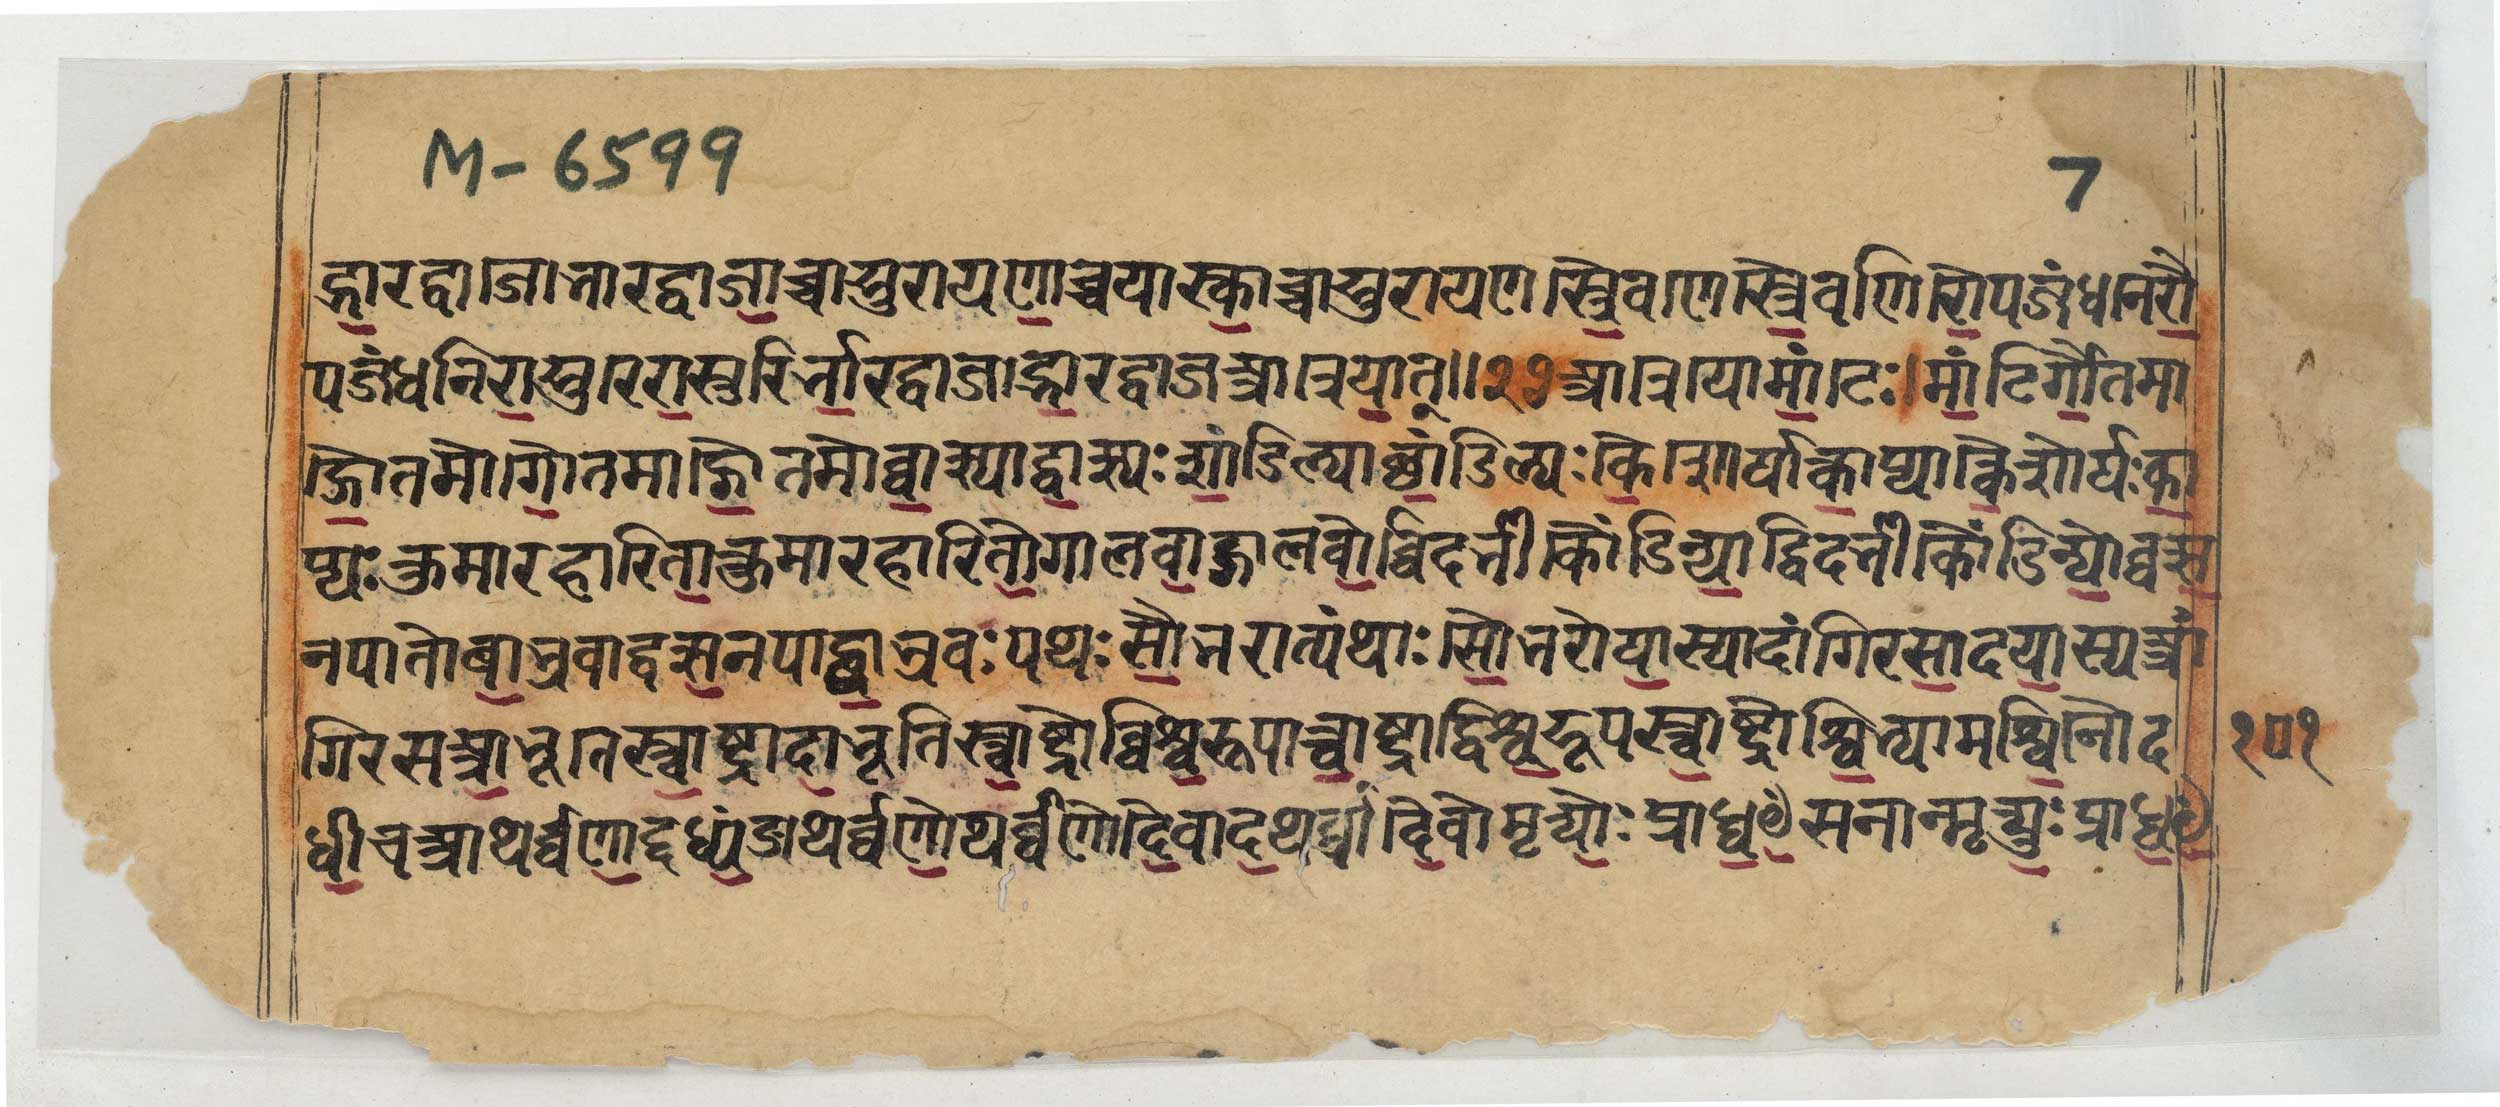 M-6599
7
द्भारद्वाजो भारद्वाजाच्चासुरायणाच्च यास्काच्चासुरायणस्त्रैवणेस्त्रैवणिरौपजंधनेरौ
पजंधनिरासुरेरासुरिर्भारद्वाजाद्भारद्वाज आत्रेयात् ॥२७ आत्रेयो मांटेः । मांटिर्गौतमा
द्गौतमो गौतमाद्गौतमो वात्स्याद्वात्स्यः शांडिल्याच्छांडिल्यः कैशोर्यात्काप्यात्कैशोर्यः का
प्यः कुमारहारितात्कुमारहारितो गालवाद्गालवो विदर्भीकौंडिन्याद्विदर्भीकौंडिन्यो वत्स
नपातो बाभ्रवाद्वत्सनपाद्बाभ्रवः पथः सौभरात्पंथाः सौभरो यास्यादांगिरसादयास्य आं
गिरस आभूतेस्त्वाष्ट्रादाभूतिस्त्वाष्ट्रो विश्वरूपात्त्वाष्ट्राद्विश्वरूपस्त्वाष्ट्रोश्विभ्यामश्विनौ द
१५१
धीच आथर्व्वणाद्दध्यंङाथर्व्वणोथर्व्वणो दैवादथर्व्वा दैवो मृत्योः प्राध्वꣳसनान्मृत्युः प्राध्वꣳ